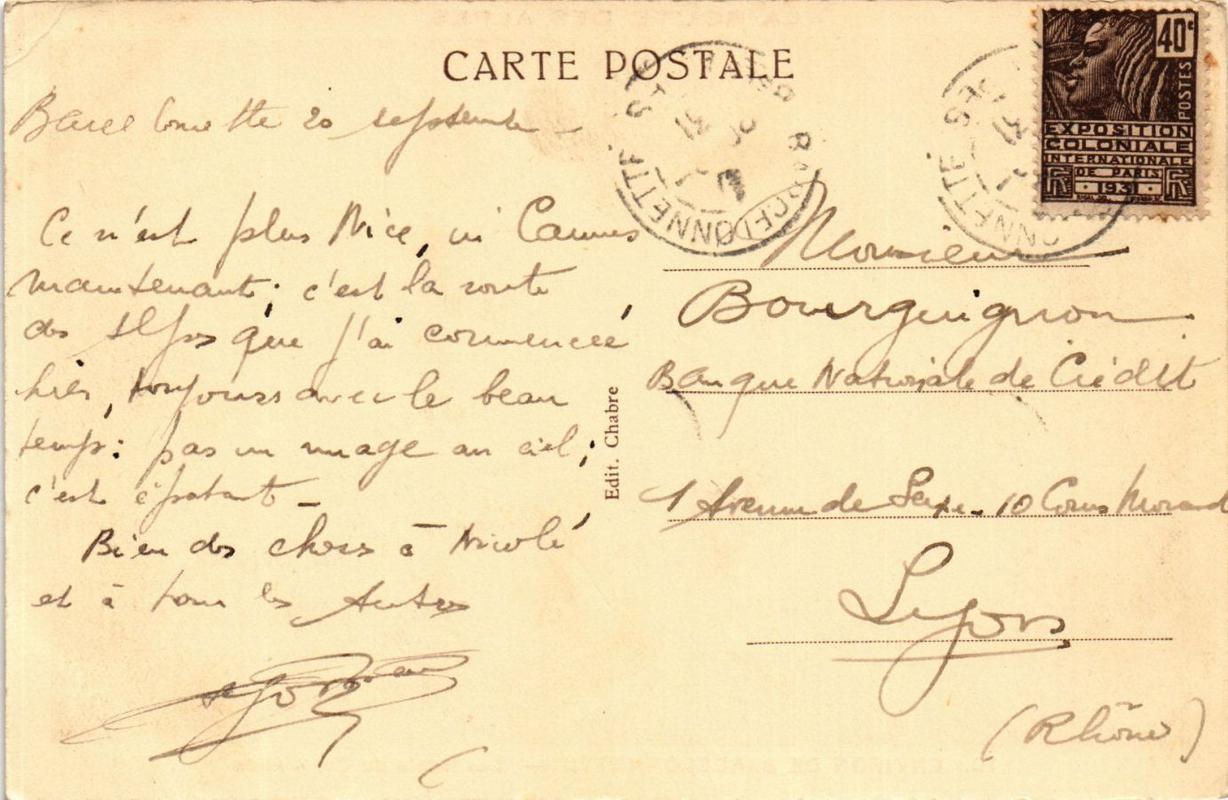 CARTE POSTALE
Barcelonnette 20 septembre -
Ce n'est plus Nice, ni Cannes
maintenant; c'est la route
des Alpes que j'ai commencée
hier, toujours avec le beau
temps: pas un nuage au ciel;
c'est épatant -
Bien des choses à Nicole
et à tous les autres
Edit. Chabre
40c
POSTES
EXPOSITION
COLONIALE
INTERNATIONALE
DE PARIS
1931
BARCELONNETTE
Monsieur
Bourguignon
Banque Nationale de Crédit
1 Avenue de Saxe - 10 Cours Morand
Lyon
(Rhône)